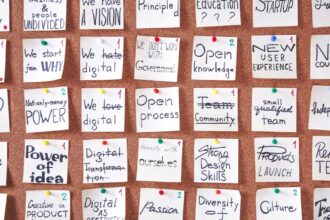 & people
undivided
We have
a VISION
Principle
Education
? ? ?
STARTUP
We start
for WHY
We hate
digital
WE DON'T WORK
with
Governments
Open
knowledge
2
NEW
USER
EXPERIENCE
Not only money
POWER
We love
digital
Open
process
Team
Community
small
qualified
Team
Power
of idea
1
Digital
Transforma-
tion
1
Honesty with
ourselves
Strong
Design
Skills
Products
LAUNCH
1
Creative in
PRODUCT
2
Digital
as
Passion
Diversity
of
2
Culture
2